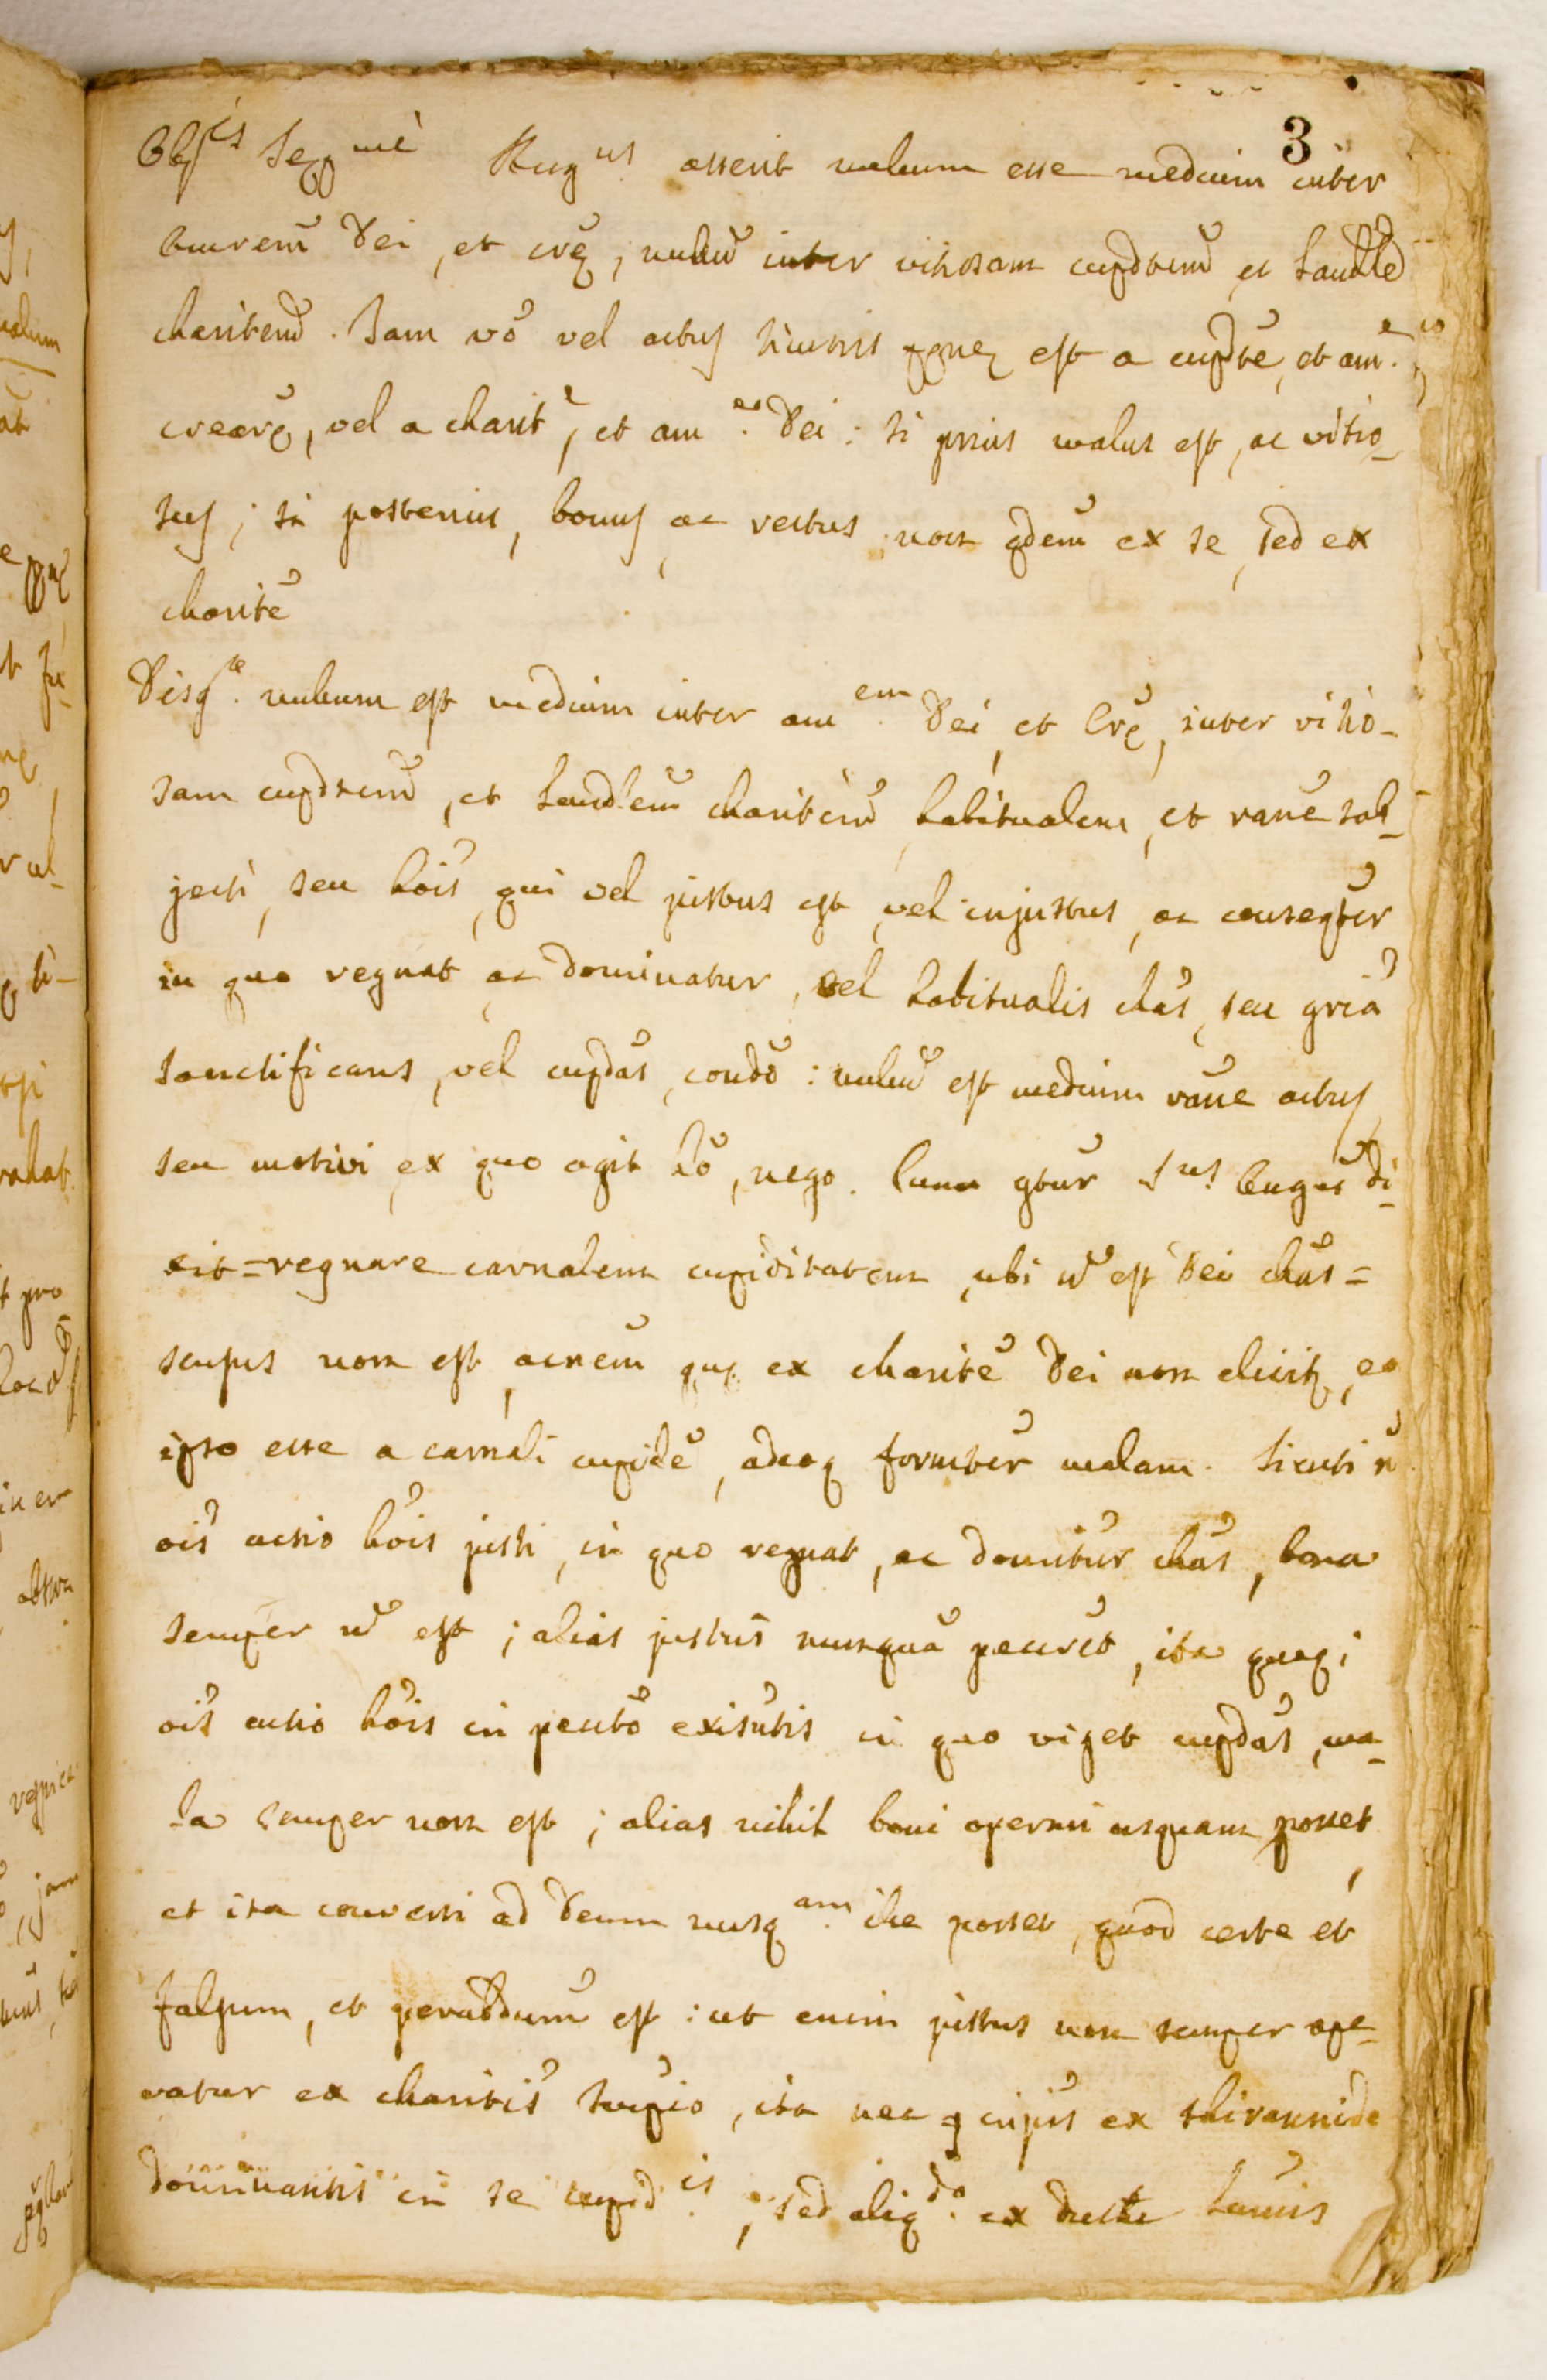 3
Obj^es Seq^me Aug^us asserit nullum esse medium inter
amrem̃ Dei, et crę̃, nullũ inter vitiosam cupdtem̃ et laudlẽ
charitem̃. Jam võ vel actus est a cupdtẽ, et am.
crearę̃, vel a charit̃, et am^e. Dei: si prius malus est, ac vitio-
sus; si posterius, bonus ac rectus, non qdem̃ ex se, sed ex
charitẽ
Disq^o. nullum est medium inter am^em. Dei, et Crę̃, inter vitio-
sam cupdtem̃, et laudlem̃ charitem̃ habitualem, et ranẽ sub-
jecti, seu hõis, qui vel justus est, vel injustus, ac conseqter̃
in quo regnat ac dominatur, vel habitualis chãs, seu grĩa
sanctificans, vel cupdãs, condõ: nullũ est medium rañe actus
seu motivi ex quo agit hõ, nego. Cum gtur̃ S^us Augũs di-
xit = regnare carnalem cupiditatem, ubi ñ est Dei chãs =
non est, acnem̃ quę ex charitẽ Dei non elicit, eo
ipso esse a carnali cupidẽ, adeoq formter̃ malam. Sicuti ñ
oĩs actio hõis justi, in quo regnat, ac domitur̃ chãs, bona
semper ñ est; alias justus nunquã peccret̃, ita quoq;
oĩs actio hõis in peccto᷃ existñtis in quo viget cupdãs, ma-
la semper non est; alias nihil boni operari usquam posset,
et ita converti ad Deum nusq^am. ille posset, quod certe et
falsum, et perabsdum̃ est: ut enim justus non semper ope-
ratur ex charitĩs impio, ita nec injus̃ ex thirannide
dominantis in se cupid^is., sed aliq^do. ex luminis